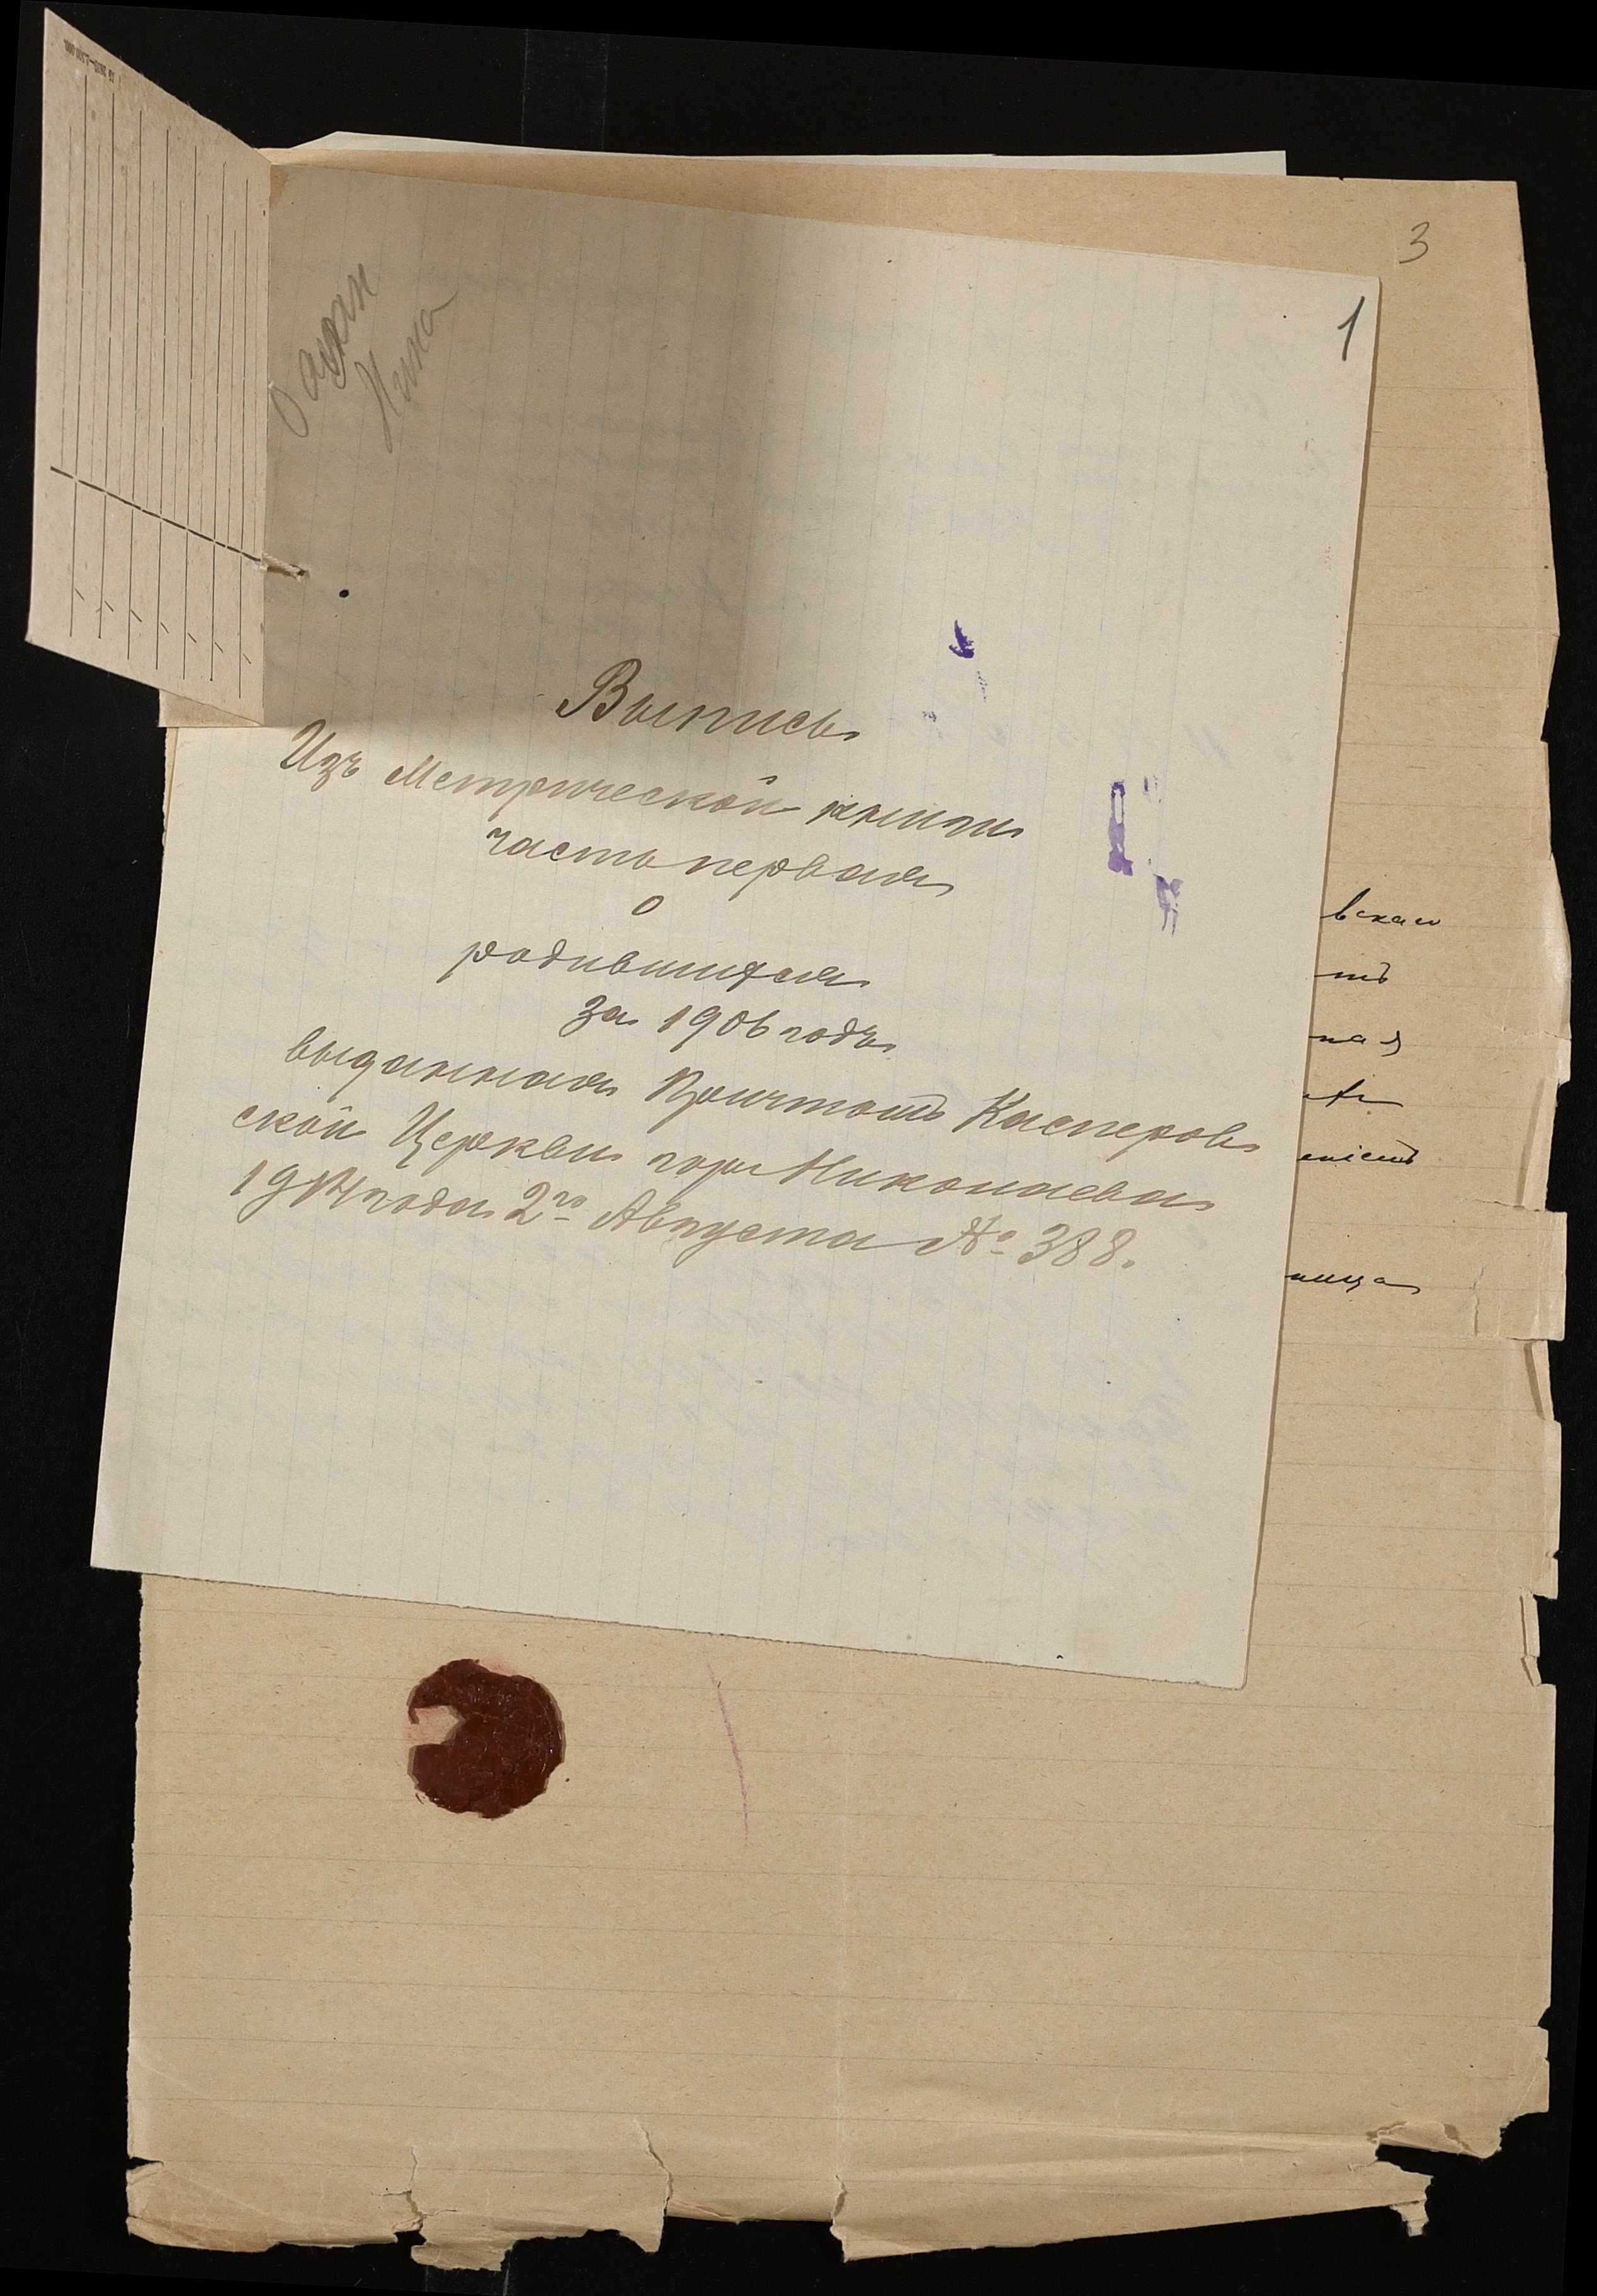 3
1
Выпись
Изъ Метрической книги
часть первая
о
родившихся
за 1906 годъ
выданная Причтомъ Касперов
ской Церкви гор. Николаева
1914 года 2го Августа № 388.
вскаго
тъ
ная
ница